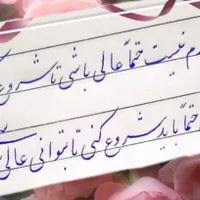 م نیست حتماً عالی باشی تا شروع ک
حتماً باید شروع کنی تا بتوانی عالی